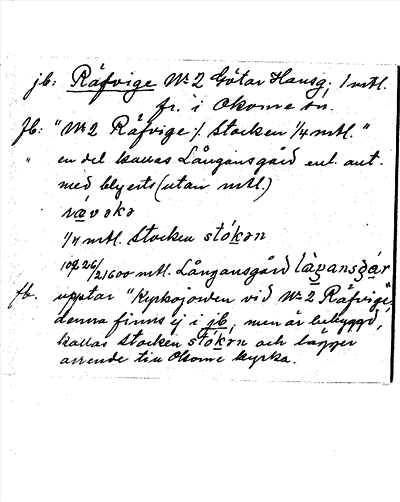 jb: Räfvige No 2 Götar Hansg. 1 mtl.
fr. i Okome sn.
Jb: "No 2 Räfvige /. Stocken 1/4 mtl."
" en del kallas Långansgård enl. ant.
med blyerts (utan mtl.)
1/4 mtl. Stocken stókən
mtl. Långansgård làŋansgár
fb. upptar "Kyrkojorden vid No 2 Räfvige",
denna finns ej i jb, men är bebyggd,
kallas Stocken stókən och lägger
arrende till Okome kyrka.